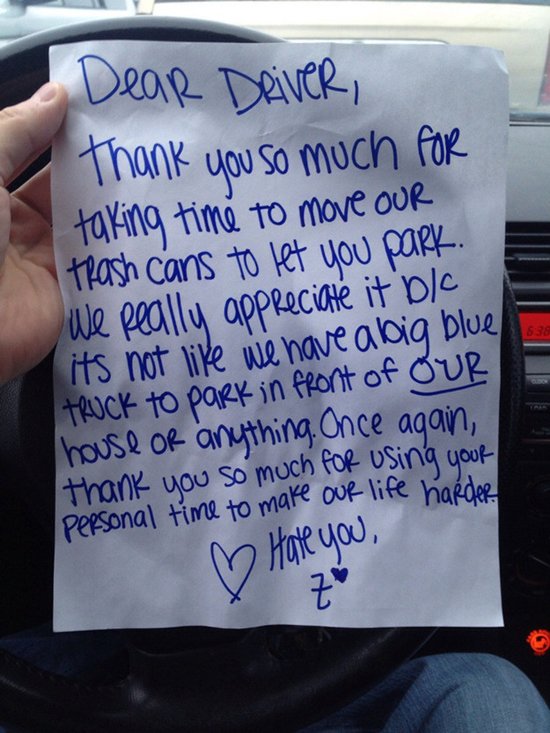 Dear Driver,
Thank you so much for
taking time to move our
trash cans to let you park.
We really appreciate it b/c
its not like we have a big blue
truck to park in front of OUR
house or anything. Once again,
thank you so much for using your
personal time to make our life harder.
♡ Hate you,
Z♥
6:38
CLOCK